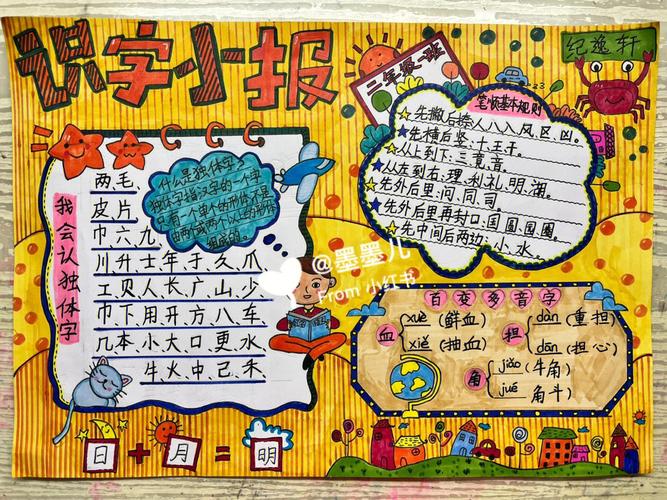 识字小报
二年级一班
纪逸轩
我会认独体字
两、毛、
皮、片
巾、六、九
川、升、士、年、于、久、爪、
工、贝、人、长、广、山、少、
巾、下、用、开、方、八、车、
几、本、小、大、口、更、水、
牛、火、中、己、禾、
什么是独体字?
独体字指汉字的一个字
只有一个单个的形体,不是
由两个或两个以上的形体
组成的。
日+月=明
笔顺基本规则
先撇后捺:人、八、入、风、区、凶。
先横后竖:十、王、干。
从上到下:三、竟、音。
从左到右:理、利、礼、明、湖。
先外后里:问、同、司。
先外后里再封口:国、圆、园、圈。
先中间后两边:小、水。
百变多音字
血 xuè (鲜血)
xiě (抽血)
担 dàn (重担)
dān (担心)
角 jiǎo (牛角)
jué 角斗)
@墨墨儿
From 小红书